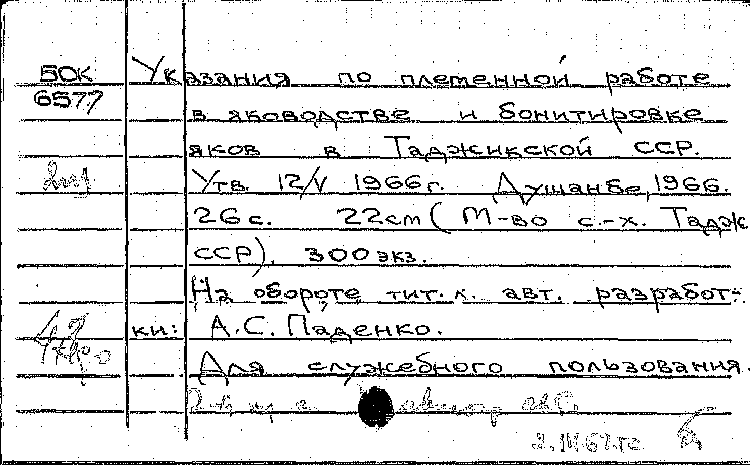 БОК Указания по племенной работе
6577 в яководстве и бонитировке
яков в Таджикской ССР.
Утв. 12/V 1966г. Душанбе, 1966.
26с. 22см (М-во с.-х. Тадж
ССР). 300 экз.
На обороте тит. л. авт. разработ-
ки: А.С. Паденко.
Для служебного пользования.